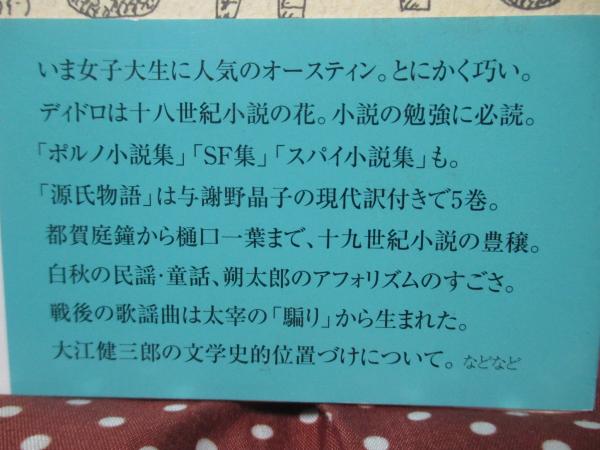 いま女子大生に人気のオースティン。とにかく巧い。
ディドロは十八世紀小説の花。小説の勉強に必読。
「ポルノ小説集」「SF集」「スパイ小説集」も。
「源氏物語」は与謝野晶子の現代訳付きで5巻。
都賀庭鐘から樋口一葉まで、十九世紀小説の豊穣。
白秋の民謡・童話、朔太郎のアフォリズムのすごさ。
戦後の歌謡曲は太宰の「騙り」から生まれた。
大江健三郎の文学史的位置づけについて。などなど